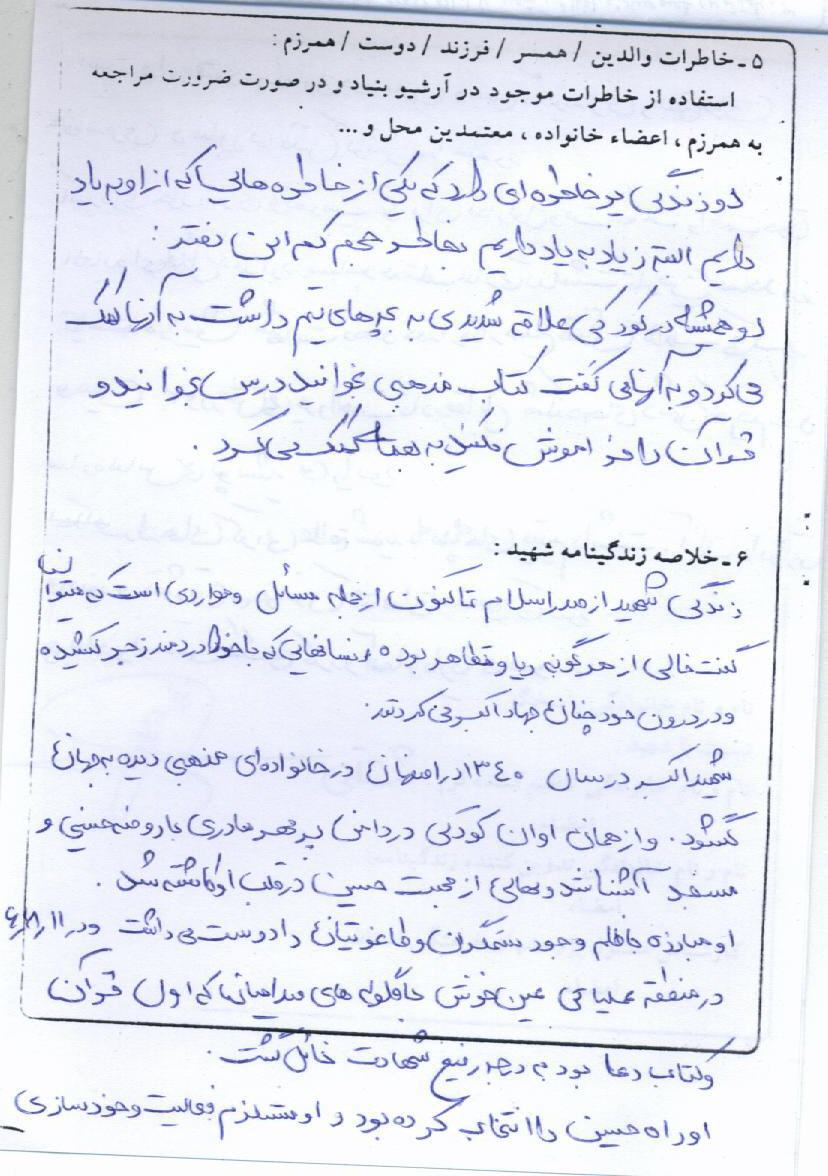 ۵ ـ خاطرات والدین / همسر / فرزند / دوست / همرزم :
استفاده از خاطرات موجود در آرشیو بنیاد و در صورت ضرورت مراجعه
به همرزم ، اعضاء خانواده ، معتمدین محل و ...
او زندگی پر خاطره ای دارد که یکی از خاطره هایی که از او به یاد
داریم البته زیاد به یاد داریم بخاطر حجم کم این دفتر :
او همیشه در کودکی علاقه شدیدی به بچه های یتیم داشت به آنها کمک
می کرد و به آنها می گفت کتاب مذهبی بخوانید درس بخوانید و
قرآن را فراموش نکنید به همه کمک می کرد .
۶ ـ خلاصه زندگینامه شهید :
زندگی شهید از صدر اسلام تا کنون از جمله مسائل و مواردی است که میتوان
گفت خالی از هر گونه ریا و تظاهر بوده انسانهایی که با خود درد مند زجر کشیده
و در درون خود چنان جهاد اکبر می کردند.
شهید اکبر در سال ۱۳۴۰ در اصفهان در خانواده ای مذهبی دیده به جهان
گشود . و از همان اوان کودکی در دامن پر مهر مادری با روضه حسینی و
مسجد آشنا شد و نهالی از محبت حسین در قلب او کاشته شد .
او مبارزه با ظلم وجود ستمگران و طاغوتیان را دوست می داشت و در ۱۱ر۸ر
در منطقه عملیاتی عین خوش با گلوله های که اول قرآن
و کتاب دعا بود به درجه رفیع شهادت نائل گشت .
او راه حسین را انتخاب کرده بود و او فعالیت و خودسازی